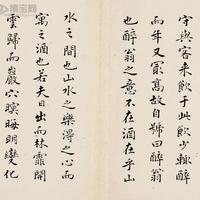 守與客来飲于此飲少輒醉
而年又最高故自號曰醉翁
也醉翁之意不在酒在乎山
水之間也山水之樂得之心而
寓之酒也若夫日出而林霏開
雲歸而巖穴暝晦明變化